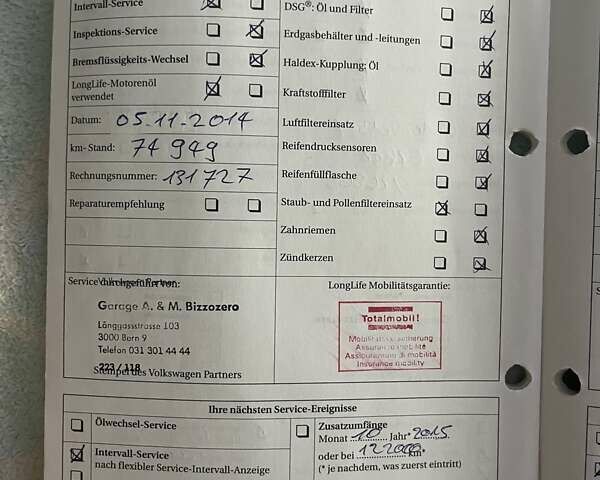 Intervall-Service
Inspektions-Service
Bremsflüssigkeits-Wechsel
LongLife-Motorenöl
verwendet
Datum: 05.11.2014
km-Stand: 74 949
Rechnungsnummer: 131727
Reparaturempfehlung
DSG®: Öl und Filter
Erdgasbehälter und -leitungen
Haldex-Kupplung: Öl
Kraftstofffilter
Luftfiltereinsatz
Reifendrucksensoren
Reifenfüllflasche
Staub- und Pollenfiltereinsatz
Zahnriemen
Zündkerzen
Service durchgeführt von:
Garage A. & M. Bizzozero
Länggassstrasse 103
3000 Bern 9
Telefon 031 301 44 44
223 / 118
Stempel des Volkswagen Partners
LongLife Mobilitätsgarantie:
Totalmobil!
Mobilitätsversicherung
Assurance mobilité
Assicurazione di mobilità
Insurance mobility
Ihre nächsten Service-Ereignisse
Ölwechsel-Service
Intervall-Service
nach flexibler Service-Intervall-Anzeige
Zusatzumfänge
Monat 10 Jahr* 2015
oder bei 122000 km*
(* je nachdem, was zuerst eintritt)